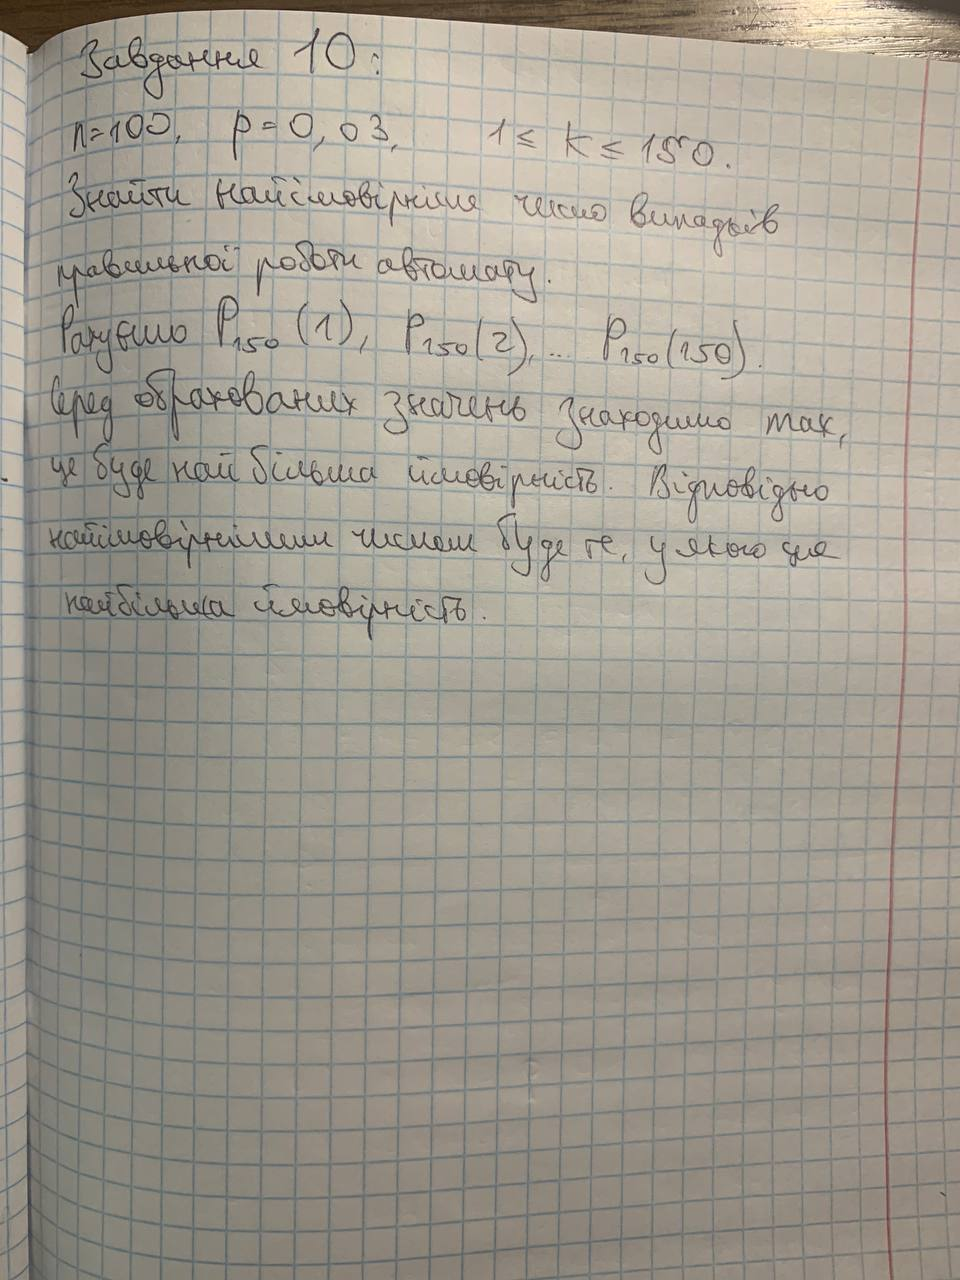 Завдання 10:
n=100, p=0,03, 1≤ k ≤ 150.
Знайти найімовірніше число випадків
правильної роботи автомату.
Рахуємо P₁₅₀(1), P₁₅₀(2), ... P₁₅₀(150).
Серед обрахованих значень знаходимо max,
це буде найбільша ймовірність. Відповідно
найімовірнішим числом буде те, у якого ця
найбільша ймовірність.